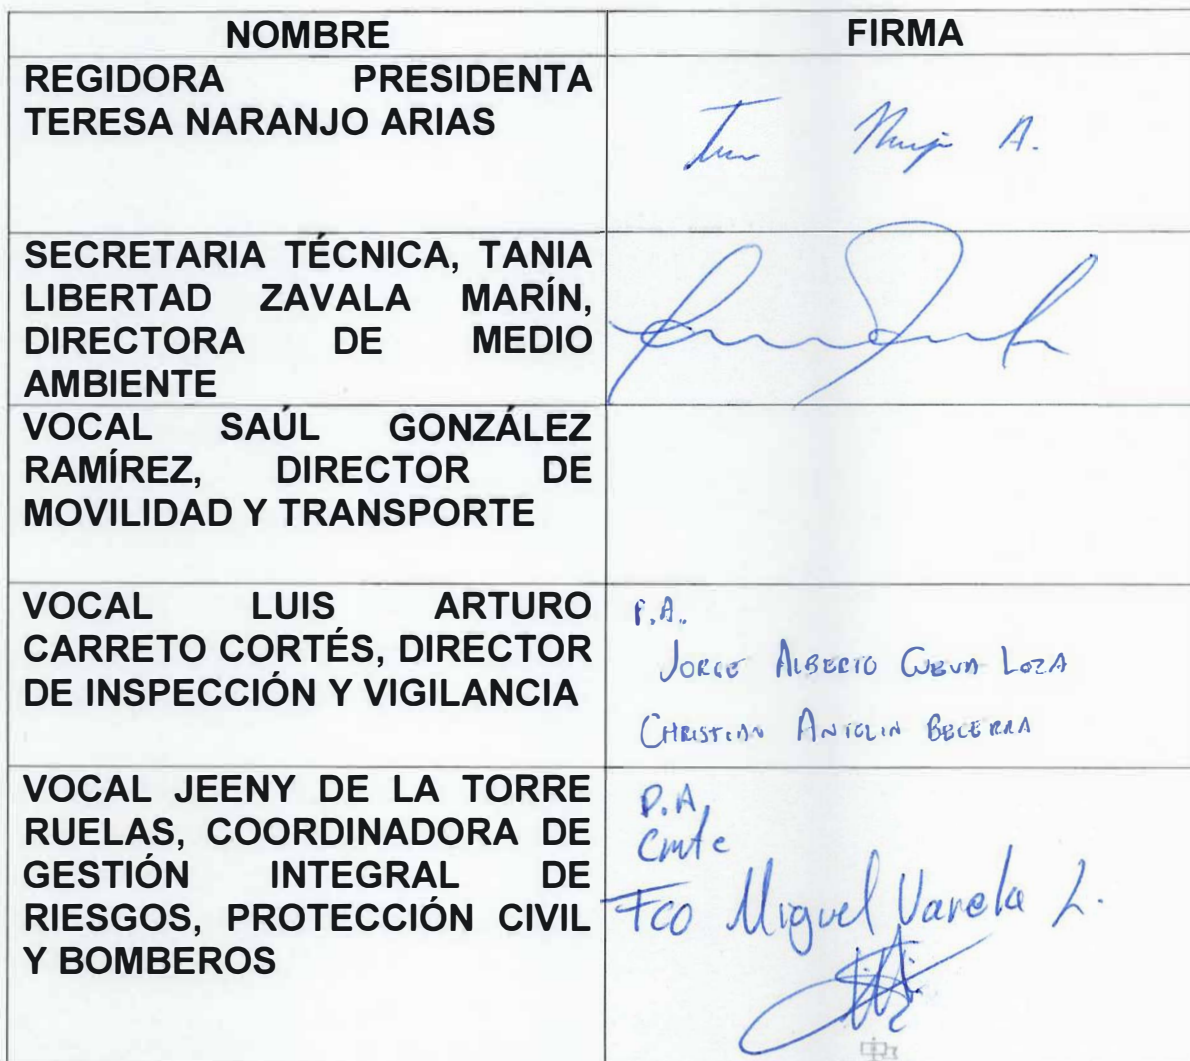 NOMBRE
FIRMA
REGIDORA PRESIDENTA
TERESA NARANJO ARIAS
A.
SECRETARIA TÉCNICA, TANIA
LIBERTAD ZAVALA MARÍN,
DIRECTORA DE MEDIO
AMBIENTE
VOCAL SAÚL GONZÁLEZ
RAMÍREZ, DIRECTOR DE
MOVILIDAD Y TRANSPORTE
VOCAL LUIS ARTURO
CARRETO CORTÉS, DIRECTOR
DE INSPECCIÓN Y VIGILANCIA
P.A.
JORGE ALBERTO CUEVA LOZA
CHRISTIAN ANTOLIN BECERRA
VOCAL JEENY DE LA TORRE
RUELAS, COORDINADORA DE
GESTIÓN INTEGRAL DE
RIESGOS, PROTECCIÓN CIVIL
Y BOMBEROS
P.A.
Cmte
Fco Miguel Varela L.